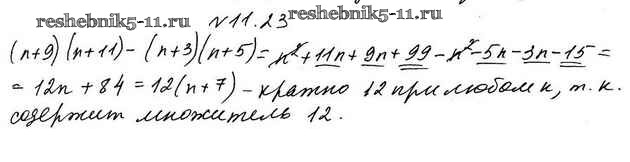 reshebnik5-11.ru
reshebnik5-11.ru
№11.23
(n+9)(n+11)-(n+3)(n+5)=n²+11n+9n+99-n²-5n-3n-15=
=12n+84=12(n+7)-кратно 12 при любом n, т.к.
содержит множитель 12.